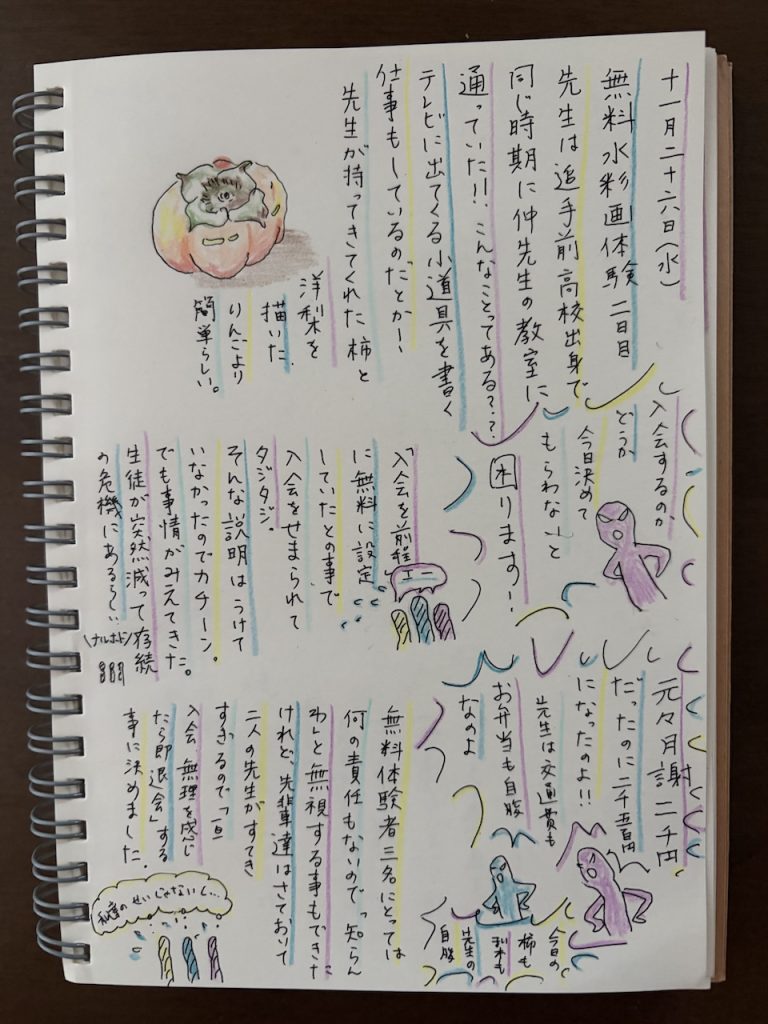 十一月二十六日(水)
無料水彩画体験 二日目
先生は追手前高校出身で
同じ時期に仲先生の教室に
通っていた!!、こんなことってある??
テレビに出てくる小道具を書く
仕事もしているのだとかー、
先生が持ってきてくれた柿と
洋梨を
描いた
りんごより
簡単らしい。
入会するのか
どうか
今日決めて
もらわないと
困ります!
「入会を前程」
に無料に設定
していたとの事で
入会をせまられて
タジタジ。
そんな説明はうけて
いなかったのでカチーン。
でも事情がみえてきた。
生徒が突然減って存続
の危機にあるらしい
ナルホドン
元々月謝二千円
だったのに二千五百円
になったのよ!!
先生は交通費も
お弁当も自腹
なのよ
今日の
柿も
梨も
先生の
自腹
無料体験者三名にとっては
何の責任もないので「知らん
わ」と無視する事もできた
けれど、先輩達はさておいて
二人の先生がすてき
すぎるので「一旦
入会、無理を感じ
たら即退会」する
事に決めました。
私達のせいじゃないし…